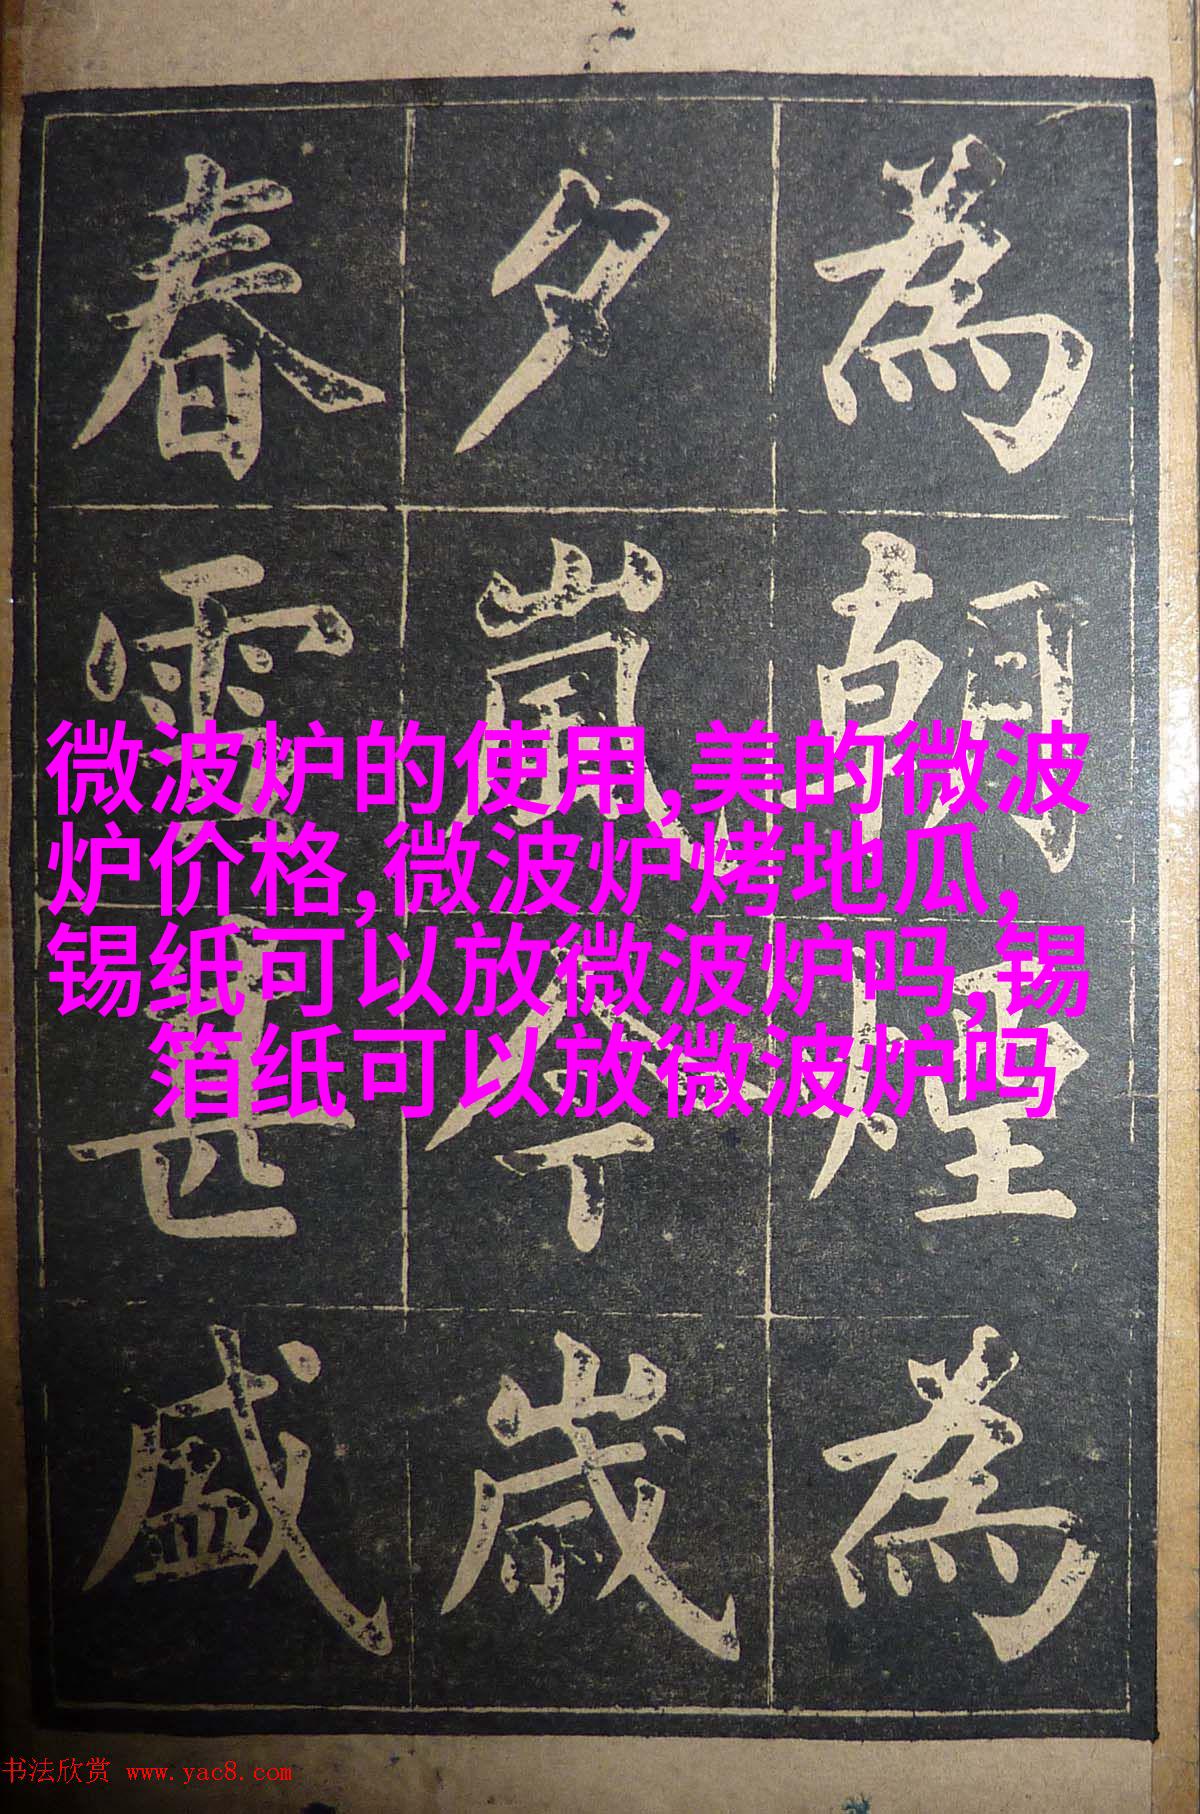 為朝煙為
夕嵐今歲
春雪甚盛
微波炉的使用,美的微波
炉价格,微波炉烤地瓜,
锡纸可以放微波炉吗,锡
箔纸可以放微波炉吗
书法欣赏 www.yac8.com